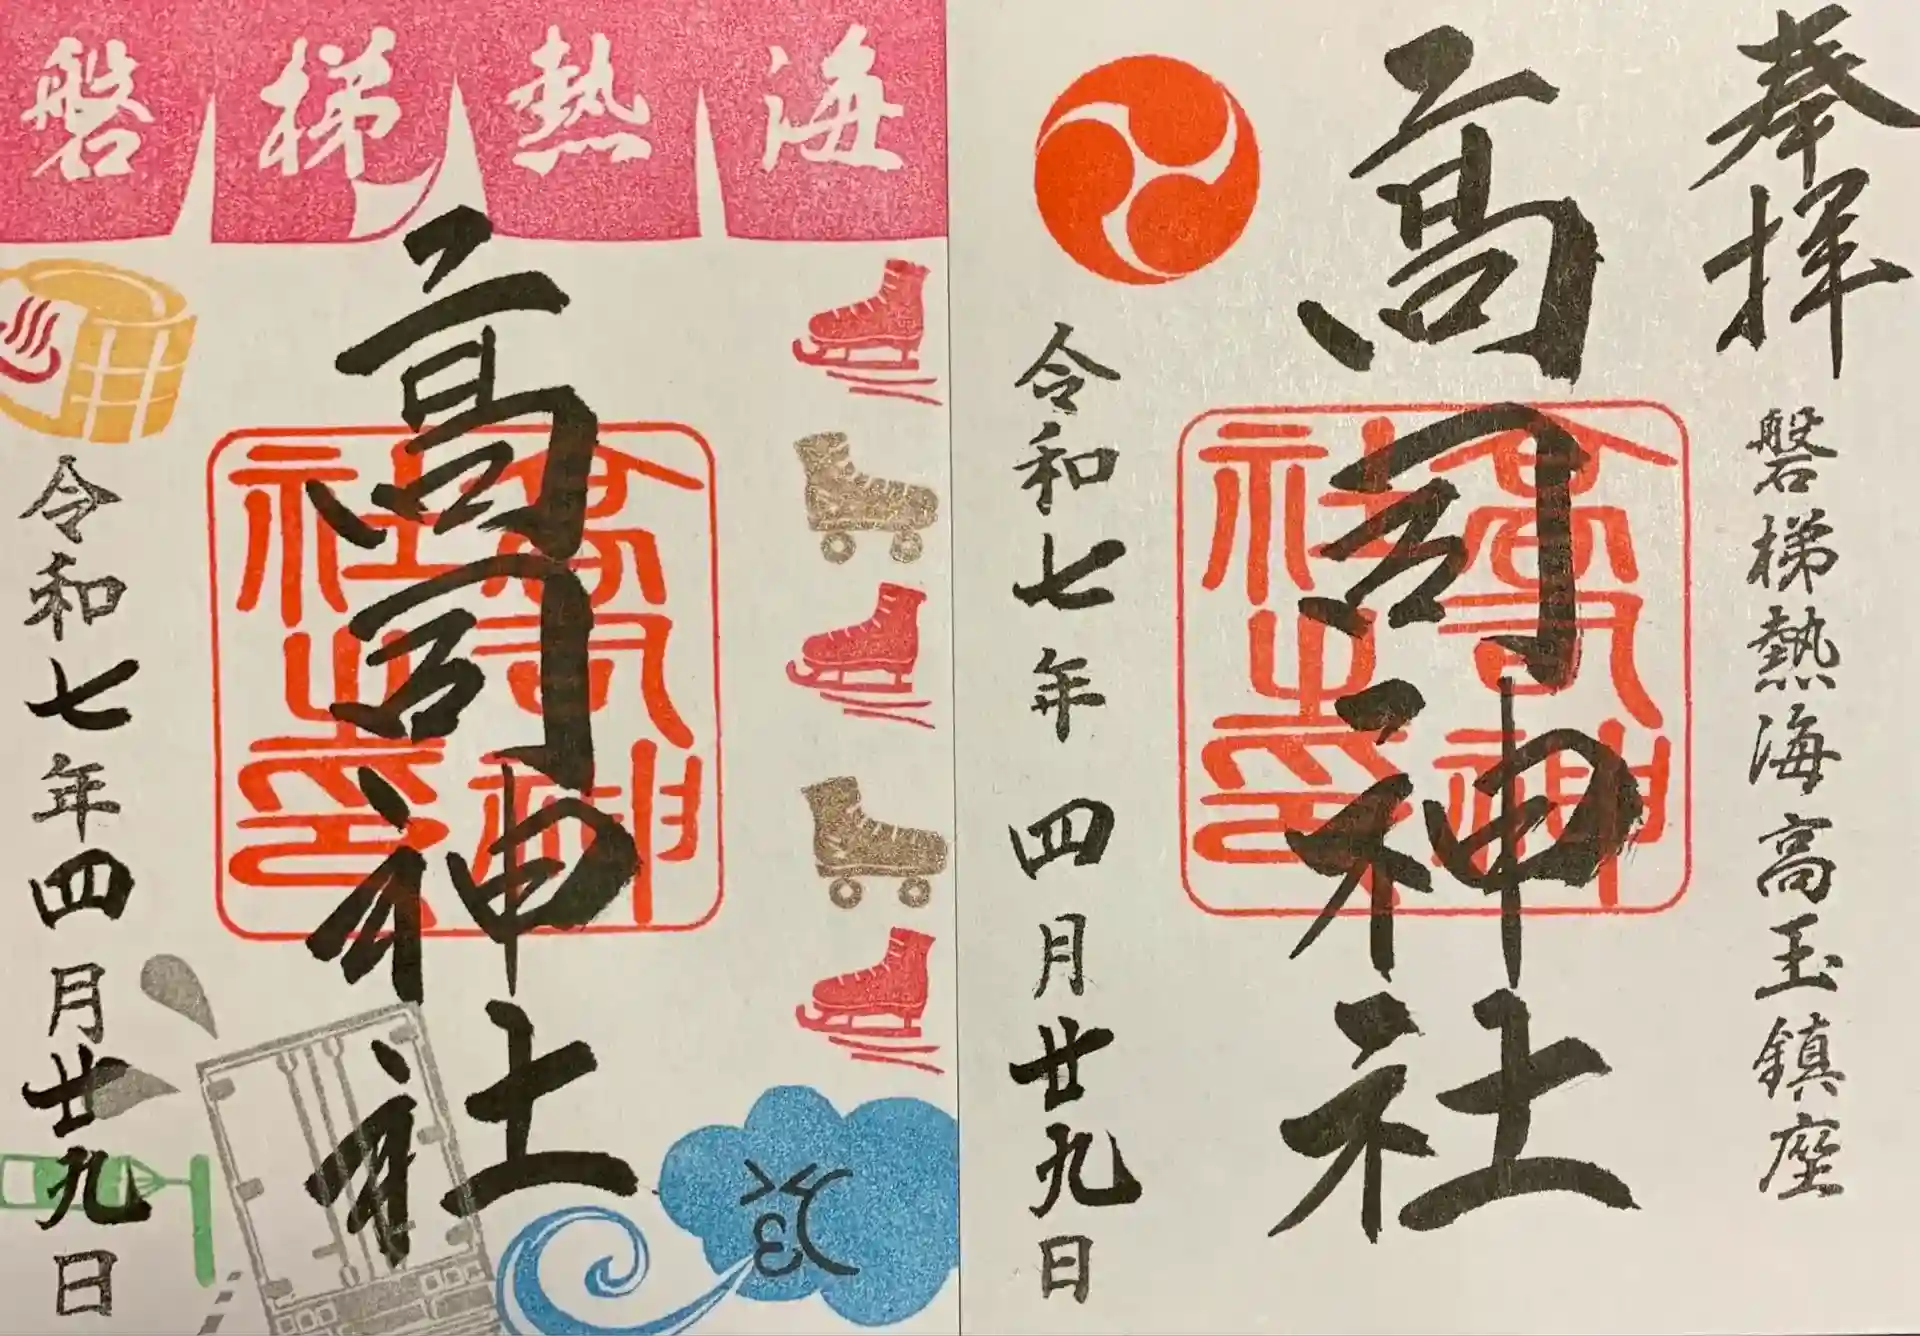 奉拝
磐梯熱海高玉鎮座
高司神社
高司神社之印
令和七年四月廿九日
磐梯熱海
高司神社
高司神社之印
令和七年四月廿九日